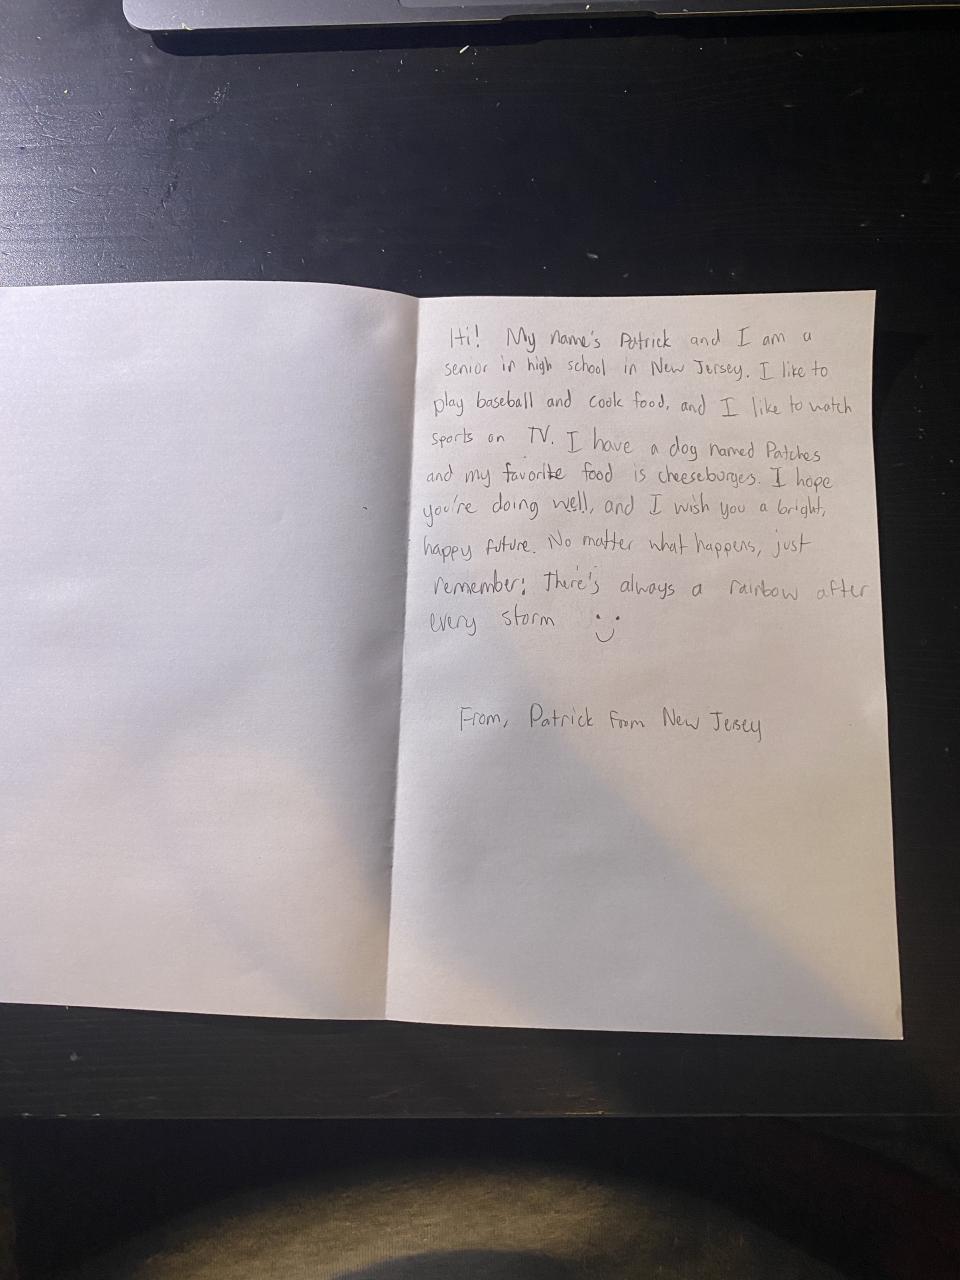 Hi! My name's Patrick and I am a
senior in high school in New Jersey. I like to
play baseball and cook food, and I like to watch
sports on TV. I have a dog named Patches
and my favorite food is cheeseburges. I hope
you're doing well, and I wish you a bright,
happy future. No matter what happens, just
remember: there's always a rainbow after
every storm
From, Patrick from New Jersey